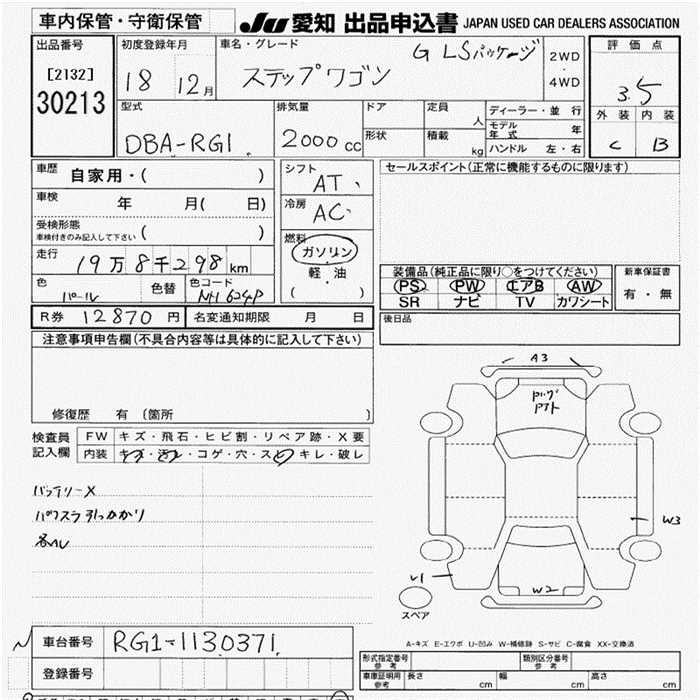 車内保管・守衛保管
JU 愛知 出品申込書 JAPAN USED CAR DEALERS ASSOCIATION
出品番号
[2132]
30213
初度登録年月
18 12月
車名・グレード
ステップワゴン
G LSパッケージ
2WD
・
4WD
評価点
3.5
外装 内装
C B
型式
DBA-RG1
排気量
2000 cc
ドア
形状
定員
人
積載
kg
ディーラー・並行
モデル年式 年
ハンドル 左・右
車歴
自家用・( )
車検
年 月( 日)
受検形態
車検付きのみ記入して下さい ( )
走行
19万8千298km
色
パール
色替
色コード
NH624P
シフト
AT
冷房
AC
燃料
ガソリン
軽・油
( )
セールスポイント(正常に機能するものに限ります)
装備品(純正品に限り○をつけてください)
PS PW エアB AW
SR ナビ TV カワシート
新車保証書
有・無
R券 12870 円
名変通知期限 月 日
後日品
注意事項申告欄(不具合内容等は具体的に記入して下さい)
修復歴 有(箇所 )
検査員
記入欄
FW キズ・飛石・ヒビ割・リペア跡・X要
内装 キズ・汚レ・コゲ・穴・スレ・キレ・破レ
バッテリーX
パワスラ引っかかり
各ル
A3
W3
U1
W2
スペア
A-キズ E-エクボ U-凹み W-補修跡 S-サビ C-腐食 XX-交換済
車台番号
RG1-1130371
登録番号
形式指定番号
参考
類別区分番号
参考
車庫証明用
参考
長さ cm 幅 cm 高さ cm